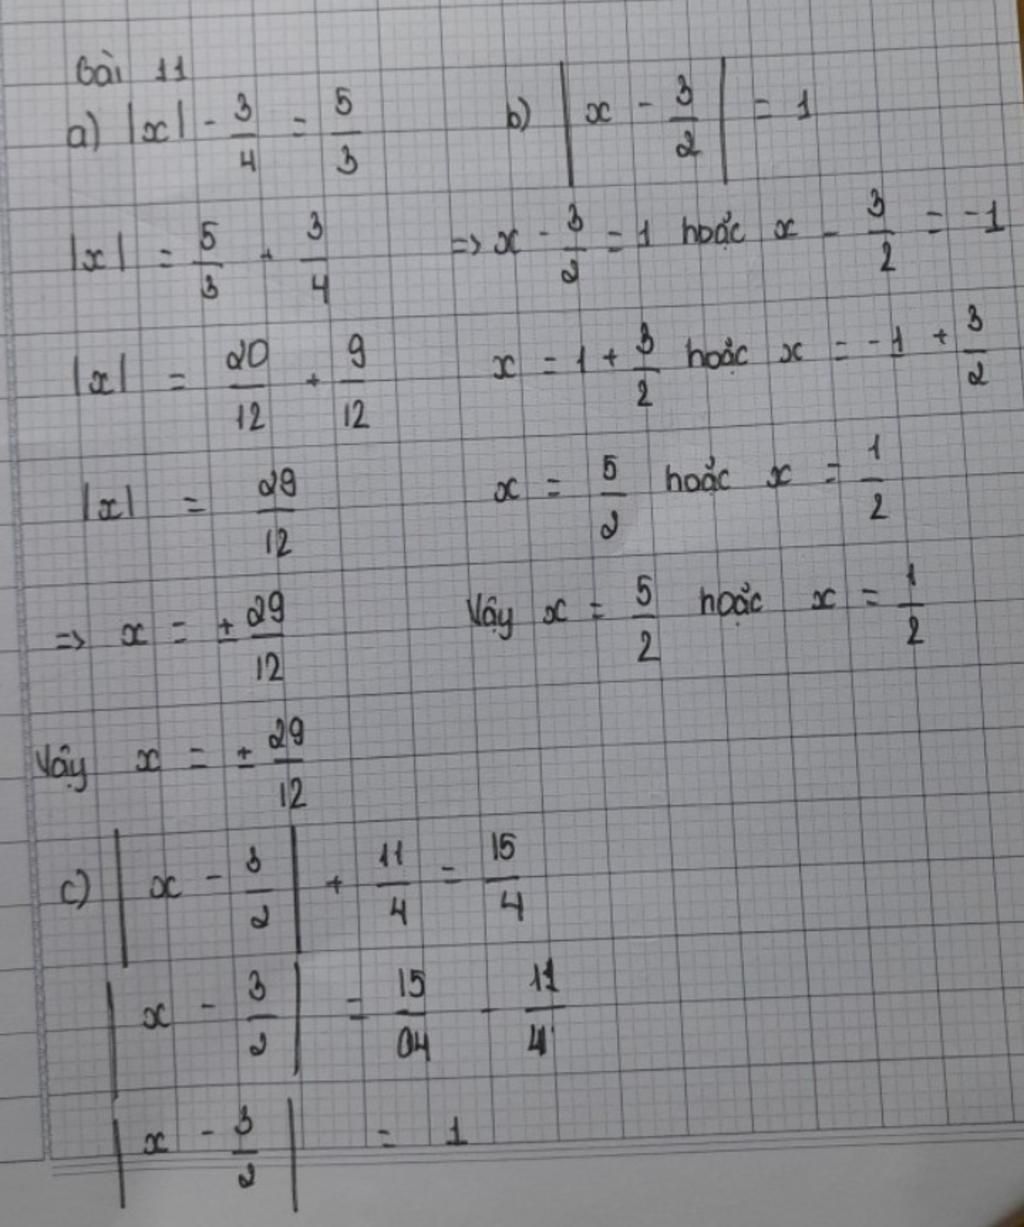 Bài 11
a) |x| - 3/4 = 5/3
|x| = 5/3 + 3/4
|x| = 20/12 + 9/12
|x| = 29/12
=> x = ± 29/12
Vậy x = ± 29/12
b) |x - 3/2| = 1
=> x - 3/2 = 1 hoặc x - 3/2 = -1
x = 1 + 3/2 hoặc x = -1 + 3/2
x = 5/2 hoặc x = 1/2
Vậy x = 5/2 hoặc x = 1/2
c) |x - 3/2| + 11/4 = 15/4
|x - 3/2| = 15/04 - 11/4
|x - 3/2| = 1